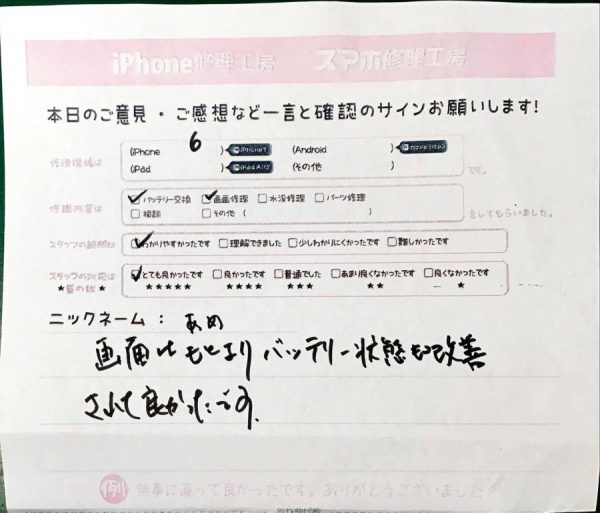 iPhone修理工房 スマホ修理工房
本日のご意見・ご感想など一言と確認のサインお願いします!
修理機種は (iPhone 6 ) iPhone7 (Android ) nova lite2 です。
(iPad ) iPad Air2 (その他 )
修理内容は バッテリー交換 画面修理 水没修理 パーツ修理
相談 その他 ( ) をしてもらいました。
スタッフの説明は わかりやすかったです 理解できました 少しわかりにくかったです 難しかったです
スタッフの対応は とても良かったです 良かったです 普通でした あまり良くなかったです 良くなかったです
★星の数★ ★★★★★ ★★★★ ★★★ ★★ ★
ニックネーム: あめ
画面はもとよりバッテリー状態も改善
されて良かったです。
例 無事に直って良かったです。ありがとうございました!